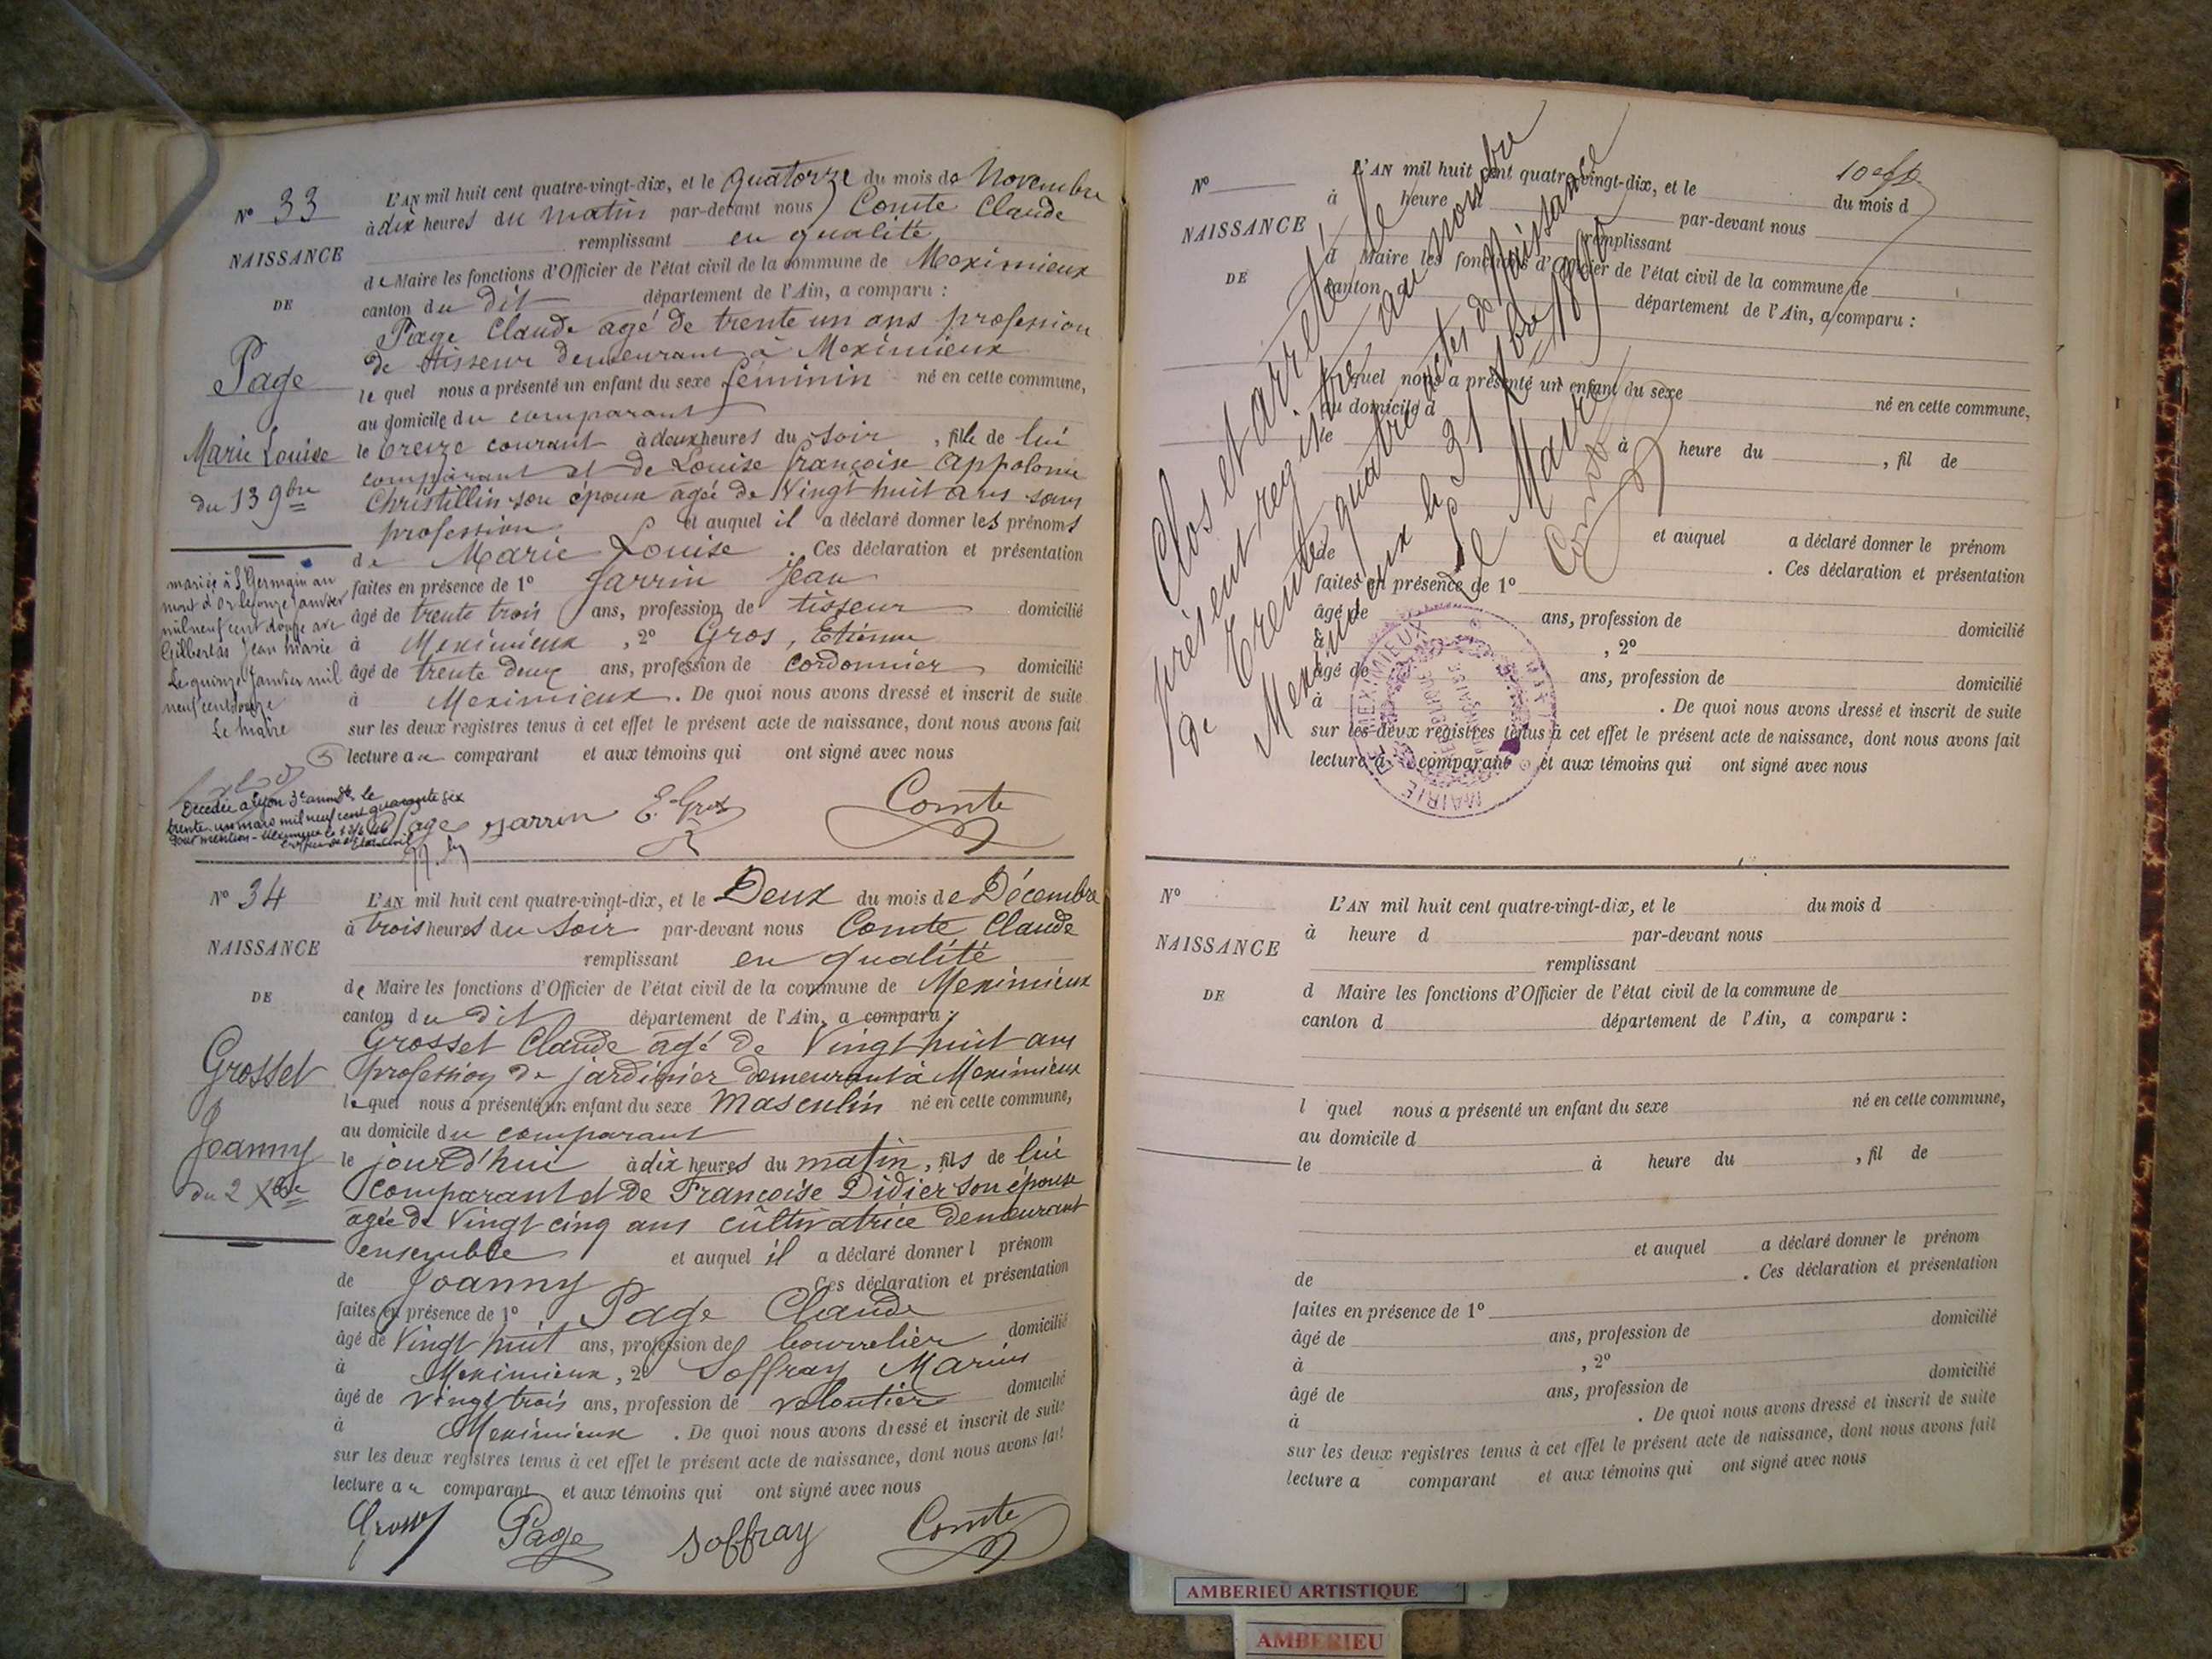 N° 33
NAISSANCE
DE
Page
Marie Louise
du 13 9bre
L'AN mil huit cent quatre-vingt-dix, et le quatorze du mois de Novembre
à dix heures du matin par-devant nous Comte Claude
remplissant en qualité
de Maire les fonctions d'Officier de l'état civil de la commune de Meximieux
canton du dit département de l'Ain, a comparu :
Page Claude agé de trente un ans profession
de tisseur demeurant à Meximieux
lequel nous a présenté un enfant du sexe féminin né en cette commune,
au domicile du comparant
le treize courant à deux heures du soir, fille de lui
comparant et de Louise françoise Appolonie
Christillin son épouse agée de Vingt huit ans sans
profession et auquel il a déclaré donner les prénoms
de Marie Louise. Ces déclaration et présentation
faites en présence de 1° Jarrin Jean
âgé de trente trois ans, profession de tisseur domicilié
à Meximieux, 2° Gros, Etienne
âgé de trente deux ans, profession de cordonnier domicilié
à Meximieux. De quoi nous avons dressé et inscrit de suite
sur les deux registres tenus à cet effet le présent acte de naissance, dont nous avons fait
lecture au comparant et aux témoins qui ont signé avec nous
mariée à St Germain au
mont d'or le onze Janvier
mil neuf cent douze avec
Gilbertas Jean Marie
Le quinze Janvier mil
neuf cent douze
Le maire
Décédée à Lyon 3e arrondt le
trente un mars mil neuf cent quarante six
Pour mention - Meximieux le
Page Jarrin E. Gros Comte
N° 34
NAISSANCE
DE
Grosset
Joanny
du 2 Xbre
L'AN mil huit cent quatre-vingt-dix, et le Deux du mois de Décembre
à trois heures du soir par-devant nous Comte Claude
remplissant en qualité
de Maire les fonctions d'Officier de l'état civil de la commune de Meximieux
canton du dit département de l'Ain, a comparu :
Grosset Claude agé de Vingt huit ans
profession de jardinier demeurant à Meximieux
lequel nous a présenté un enfant du sexe Masculin né en cette commune,
au domicile du comparant
le jourd'hui à dix heures du matin, fils de lui
comparant et de Françoise Didier son épouse
agée de Vingt cinq ans cultivatrice demeurant
ensemble et auquel il a déclaré donner l prénom
de Joanny Ces déclaration et présentation
faites en présence de 1° Page Claude
âgé de Vingt huit ans, profession de bourrelier domicilié
à Meximieux, 2° Soffray Marius
âgé de vingt trois ans, profession de domicilié
à Meximieux. De quoi nous avons dressé et inscrit de suite
sur les deux registres tenus à cet effet le présent acte de naissance, dont nous avons fait
lecture au comparant et aux témoins qui ont signé avec nous
Page Soffray Comte
N°
NAISSANCE
DE
L'AN mil huit cent quatre-vingt-dix, et le du mois d
à heure par-devant nous
remplissant
d Maire les fonctions d'Officier de l'état civil de la commune de
canton d département de l'Ain, a comparu :
l quel nous a présenté un enfant du sexe né en cette commune,
au domicile d
le à heure du , fil de
et auquel a déclaré donner le prénom
de . Ces déclaration et présentation
faites en présence de 1°
âgé de ans, profession de domicilié
à , 2°
âgé de ans, profession de domicilié
à . De quoi nous avons dressé et inscrit de suite
sur les deux registres tenus à cet effet le présent acte de naissance, dont nous avons fait
lecture a comparant et aux témoins qui ont signé avec nous
Clos et arrêté le
présent registre au nombre
de trente quatre actes de Naissance
Meximieux le 31 Xbre 1890
Le Maire
Comte
MAIRIE DE MEXIMIEUX
REPUBLIQUE FRANÇAISE
N°
NAISSANCE
DE
L'AN mil huit cent quatre-vingt-dix, et le du mois d
à heure d par-devant nous
remplissant
d Maire les fonctions d'Officier de l'état civil de la commune de
canton d département de l'Ain, a comparu :
l quel nous a présenté un enfant du sexe né en cette commune,
au domicile d
le à heure du , fil de
et auquel a déclaré donner le prénom
de . Ces déclaration et présentation
faites en présence de 1°
âgé de ans, profession de domicilié
à , 2°
âgé de ans, profession de domicilié
à . De quoi nous avons dressé et inscrit de suite
sur les deux registres tenus à cet effet le présent acte de naissance, dont nous avons fait
lecture a comparant et aux témoins qui ont signé avec nous
AMBERIEU ARTISTIQUE
AMBERIEU